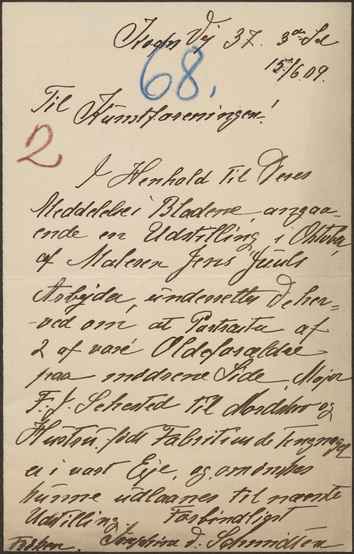 Vej 37. 3die Sal
15/6.09.
68.
Til Kunstforeningen!
2
I Henhold til Deres
Meddelelse i Bladene, angaa-
ende en Udstilling i Oktbr.
af Maleren Jens Juuls
Arbejder, underrettes De her-
ved om at Portræter af
2 af vore Oldeforældre
paa mødrene Side, Major
F. J. Sehested til Nordskov og
Hustru født Fabritius de Tengnagel
ei i vort Eje, og
kunne udlaanes til næste
Udstilling. Forbindtligst
Frøken d. Schmidten